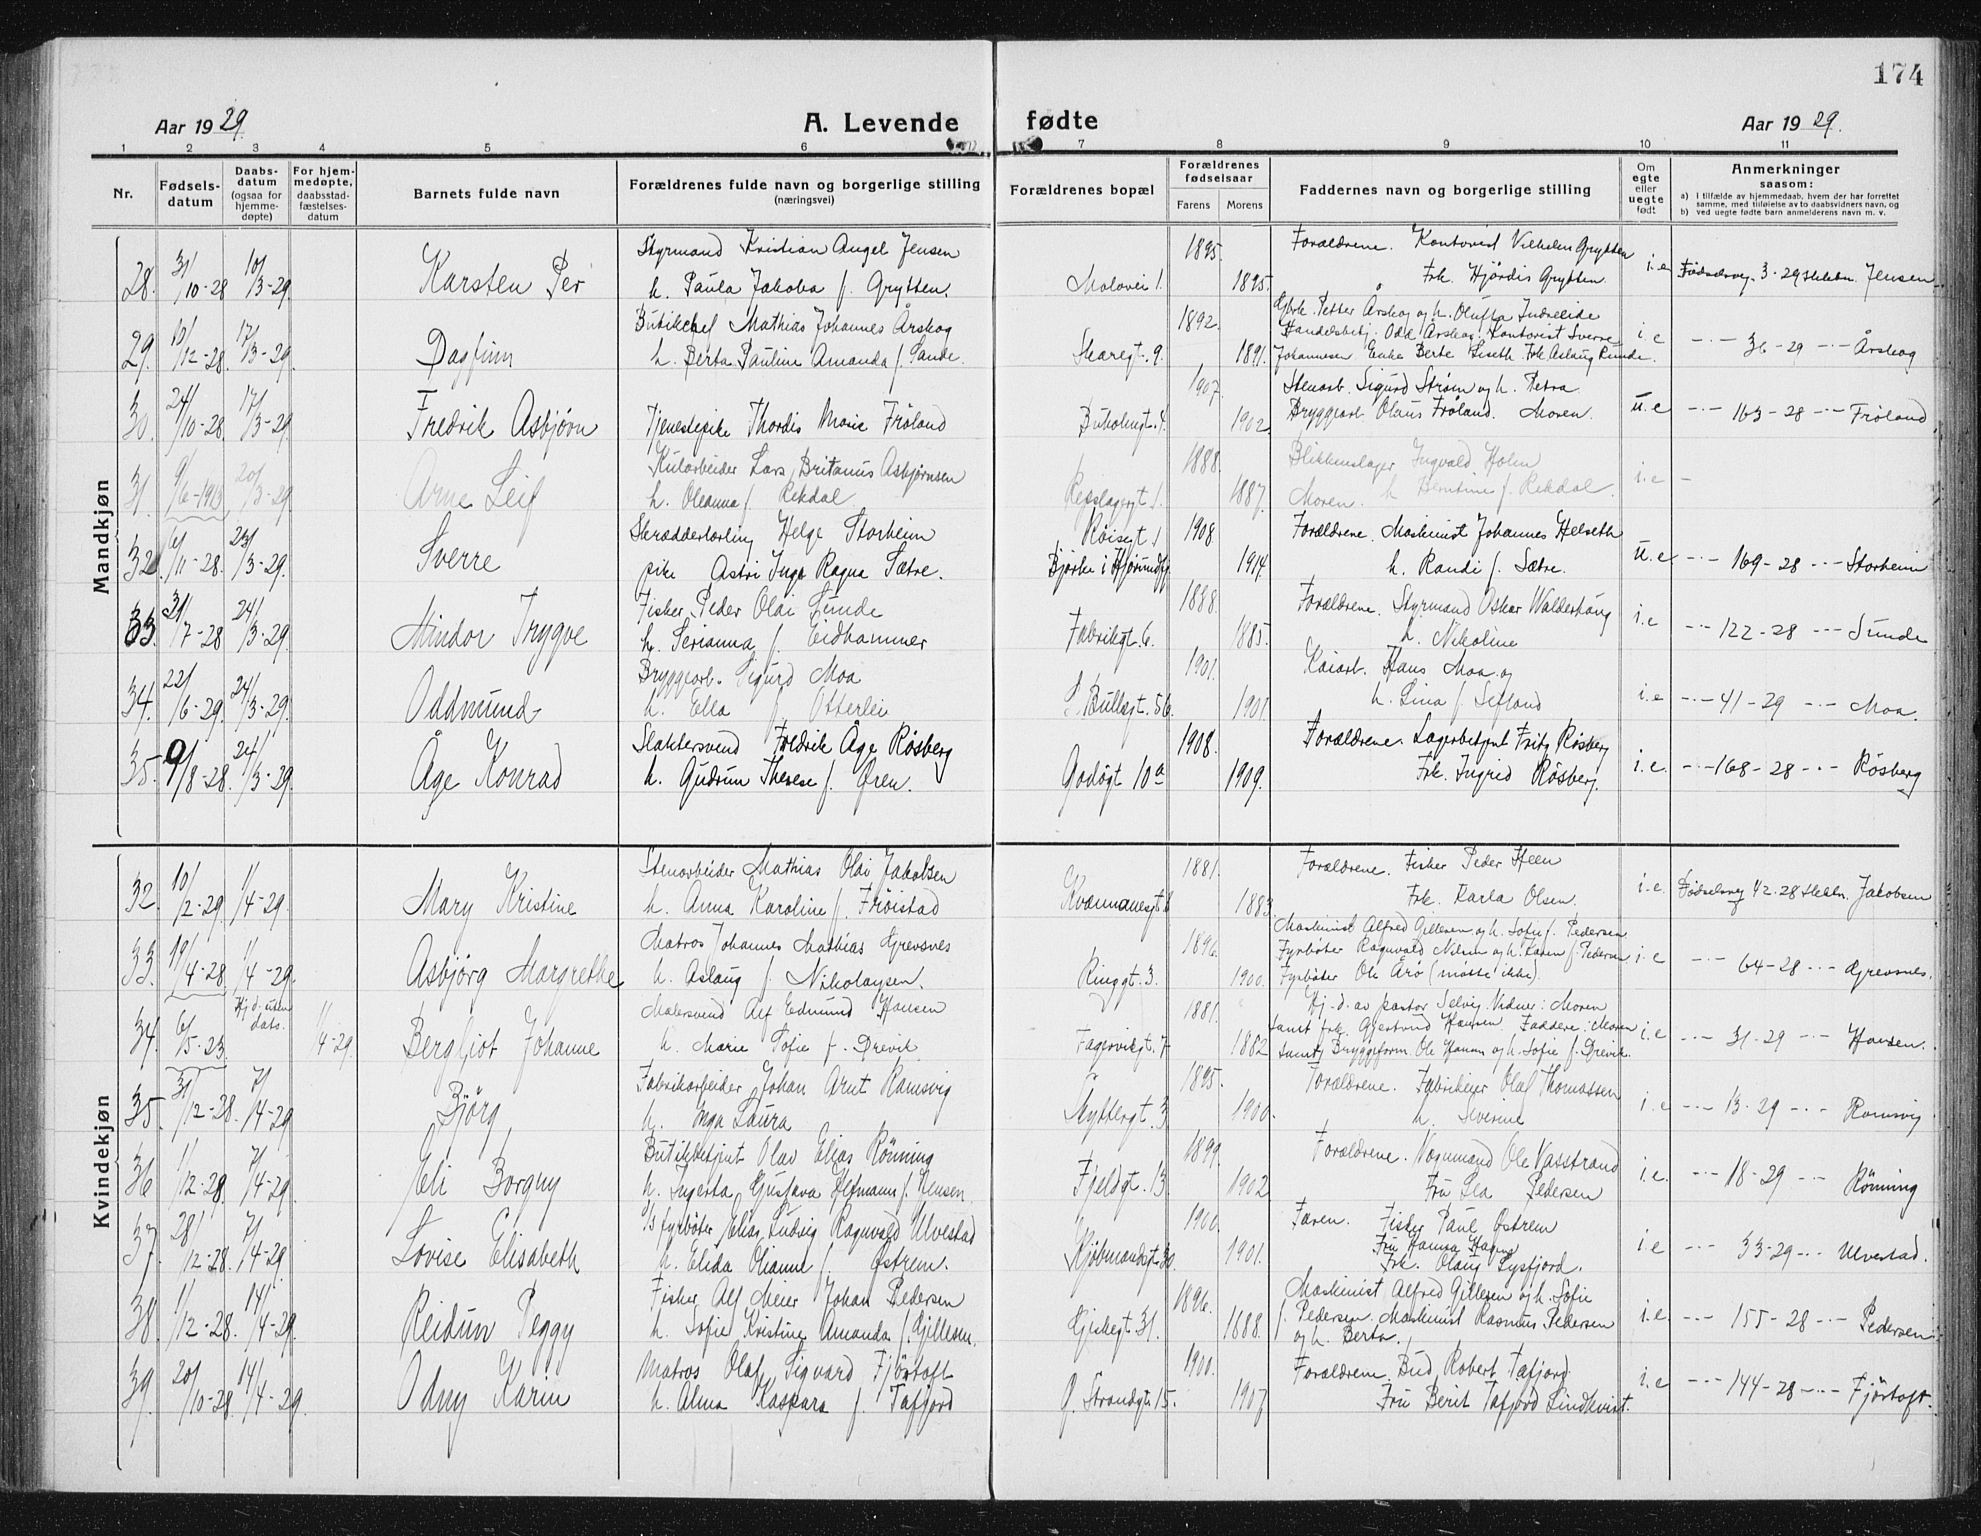 174
Aar 1929.
A. Levende fødte
Aar 1929.
1 2 3 4 5 6 7 8 9 10 11
Nr.
Fødsels-datum
Daabs-datum (ogsaa for hjemme-døpte)
For hjem-medøpte, daabsstad-fæstelses-datum
Barnets fulde navn
Forældrenes fulde navn og borgerlige stilling (næringsvei)
Forældrenes bopæl
Forældrenes fødselsaar
Farens Morens
Faddernes navn og borgerlige stilling
Om egte eller uegte født
Anmerkninger saasom:
a) i tilfælde av hjemmedaab, hvem der har forrettet samme, med tilføielse av to daabsvidners navn, og
b) ved uegte fødte barn anmelderens navn m. v.
Mandkjøn
28. 31/10-28 10/3-29. Karsten Per
Styrmand Kristian Angel Jensen
h. Paula Jakoba f. Grytten.
Molovei 1. 1895. 1895.
Forældrene. Kontorist Vilhelm Grytten
Frk. Hjördis Grytten.
i.e. Jensen
29. 10/12-28. 17/3-29. Dagfinn
Butikchef Mathias Johannes Årskog
h. Berta Pauline Amanda f. Sande.
Skaregt. 9. 1892. 1891.
Petter Årskog og h. Olufta
Odd Årskog. Kontorist Sverre
Johannesen Enke Berte Liseth. Frk Aslaug Runde.
i.e -"- 36-29 -"- Årskog
30. 24/10-28. 17/3-29. Fredrik Asbjørn
Tjenestepike Thordis Marie Fröland
Buholmgt. 4. 1907. 1902.
Stenarb. Sigurd Strøm og h. Petra
Bryggearb Olaus Fröland. Moren.
u.e -"- 163-28 -"- Fröland
31. 9/6-1913 20/3-29 Arne Leif
Kularbeider Lars Britanus Asbjørnsen
h. Oleanna f. Rekdal
Repslagergt 1. 1888. 1887.
Blikkenslager Ingvald Holm
Moren. h Berntine f. Rekdal.
i.e -
32. 6/11-28. 23/3-29. Sverre
Skrædderlærling Helge Storheim
pike Astri Inga Ragna Sætre.
Röisegt. 1
Bjørke i Hjørundfj. 1908 1914.
Forældrene. Maskinist Johannes Helseth
h. Randi f. Sætre.
u.e -"- 169-28 -"- Storheim
33. 31/7-28 24/3-29. Mindor Trygve
Fisker Peder Olai Sunde
h. Serianna f. Eidhammer
Fabrikgt. 6. 1888. 1885.
Forældrene. Styrmand Oskar Walderhaug
h. Nikoline
i.e -"- 122-28 -"- Sunde
34. 22/6-29. 24/3-29. Oddmund
Bryggearb. Sigurd Moa
h. Ella f. Otterlei
Bullsgt. 56. 1901. 1901.
Kaiarb. Hans Moa og
h. Lina f. Sefland
i.e -"- 41-29 -"- Moa.
35. 9/8-28. 24/3-29. Åge Konrad
Slaktersvend Fredrik Åge Rösberg
h. Gudrun Therese f. Øren.
Godögt 10a 1908. 1909.
Forældrene. Lagerbetjent Fritz Rösberg
Frk. Ingrid Rösberg.
i.e. -"- 168-28 -"- Rösberg
Kvindekjøn
32. 10/2-29. 1/4-29. Mary Kristine
Stenarbeider Mathias Olai Jakobsen
h. Anna Karoline f. Fröistad
1881. 1883.
Forældrene. Fisker Peder Heen
Frk. Karla Olsen.
i.e. 42-28 Jakobsen
33. 19/4-28. 1/4-29. Asbjörg Margrethe
Matros Johannes Mathias Grevsnes
h. Aslaug f. Nikolaysen.
Ringgt. 3. 1896. 1900.
Maskinist Alfred Gillesen og h. Sofie f. Pedersen
Fyrbøter Ragnvald Nilsen og h. Karen f. Pedersen
Fyrbøter Ole Årö (møtte ikke)
i.e -"- 64-28 -"- Grevsnes.
34. 6/5-23. Hj.d. uten dato. 1/4-29. Bergljot Johanne
Malersvend Alf Edmund Hansen
h. Marie Sofie f. Drevik
Fagervikgt. 7 1881. 1882
Hj.d. av pastor Selvig. Vidner: Moren
samt frk. Gjertrud Hansen. Faddere: Moren
samt Bryggeform. Ole Hansen og h. Sofie f. Drevik.
i.e -"- 31-29 -"- Hansen.
35. 31/12-28. 7/4-29 Björg
Fabrikarbeider Johan Arnt Ramsvig
h. Inga Laura
1895. 1900.
Forældrene. Fabrikeier Olaf Thomassen
h. Severine
i.e -"- 13-29 -"- Ramsvig
36 1/12-28. 7/4-29. Jeli Borgny
Butikbetjent Olav Elias Rönning
h. Ingerta Gustava Hofmann f. Jensen.
Fjeldgt. 13. 1899. 1902
Forældrene. Vognmand Ole Vasstrand
Fru Lea Pedersen
i.e. -"- 18-29 -"- Rönning
37. 28/12-28. 7/4-29. Lovise Elisabeth
Fyrbøter Elias Ludvig Ragnvald Ulvestad
h. Elida Olianne f. Østrem.
Kjöbmandsgt. 30. 1900. 1901.
Faren. Fisker Paul Østrem
Fru Hanna Hagen
Frk. Olaug Lysfjord.
i.e -"- 33-29 -"- Ulvestad.
38. 1/12-28. 14/4-29. Reidun Peggy
Fisker Alf Meier Johan Pedersen
h. Sofie Kristine Amanda f. Gillesen.
Giskegt 31. 1896. 1888.
Maskinist Alfred Gillesen og h. Sofie
f. Pedersen. Maskinist Rasmus Pedersen
og h. Berta.
i.e. -"- 155-28 -"- Pedersen
39. 20/10-28. 14/4-29. Odny Karin
Matros Olaf Sigvard Fjörtoft
h. Alma Kaspara f. Tafjord
Ø. Strandgt. 15. 1900. 1907
Forældrene. Bud Robert Tafjord
Fru Berit Tafjord Lindkvist.
i.e -"- 144-28 -"- Fjörtoft.